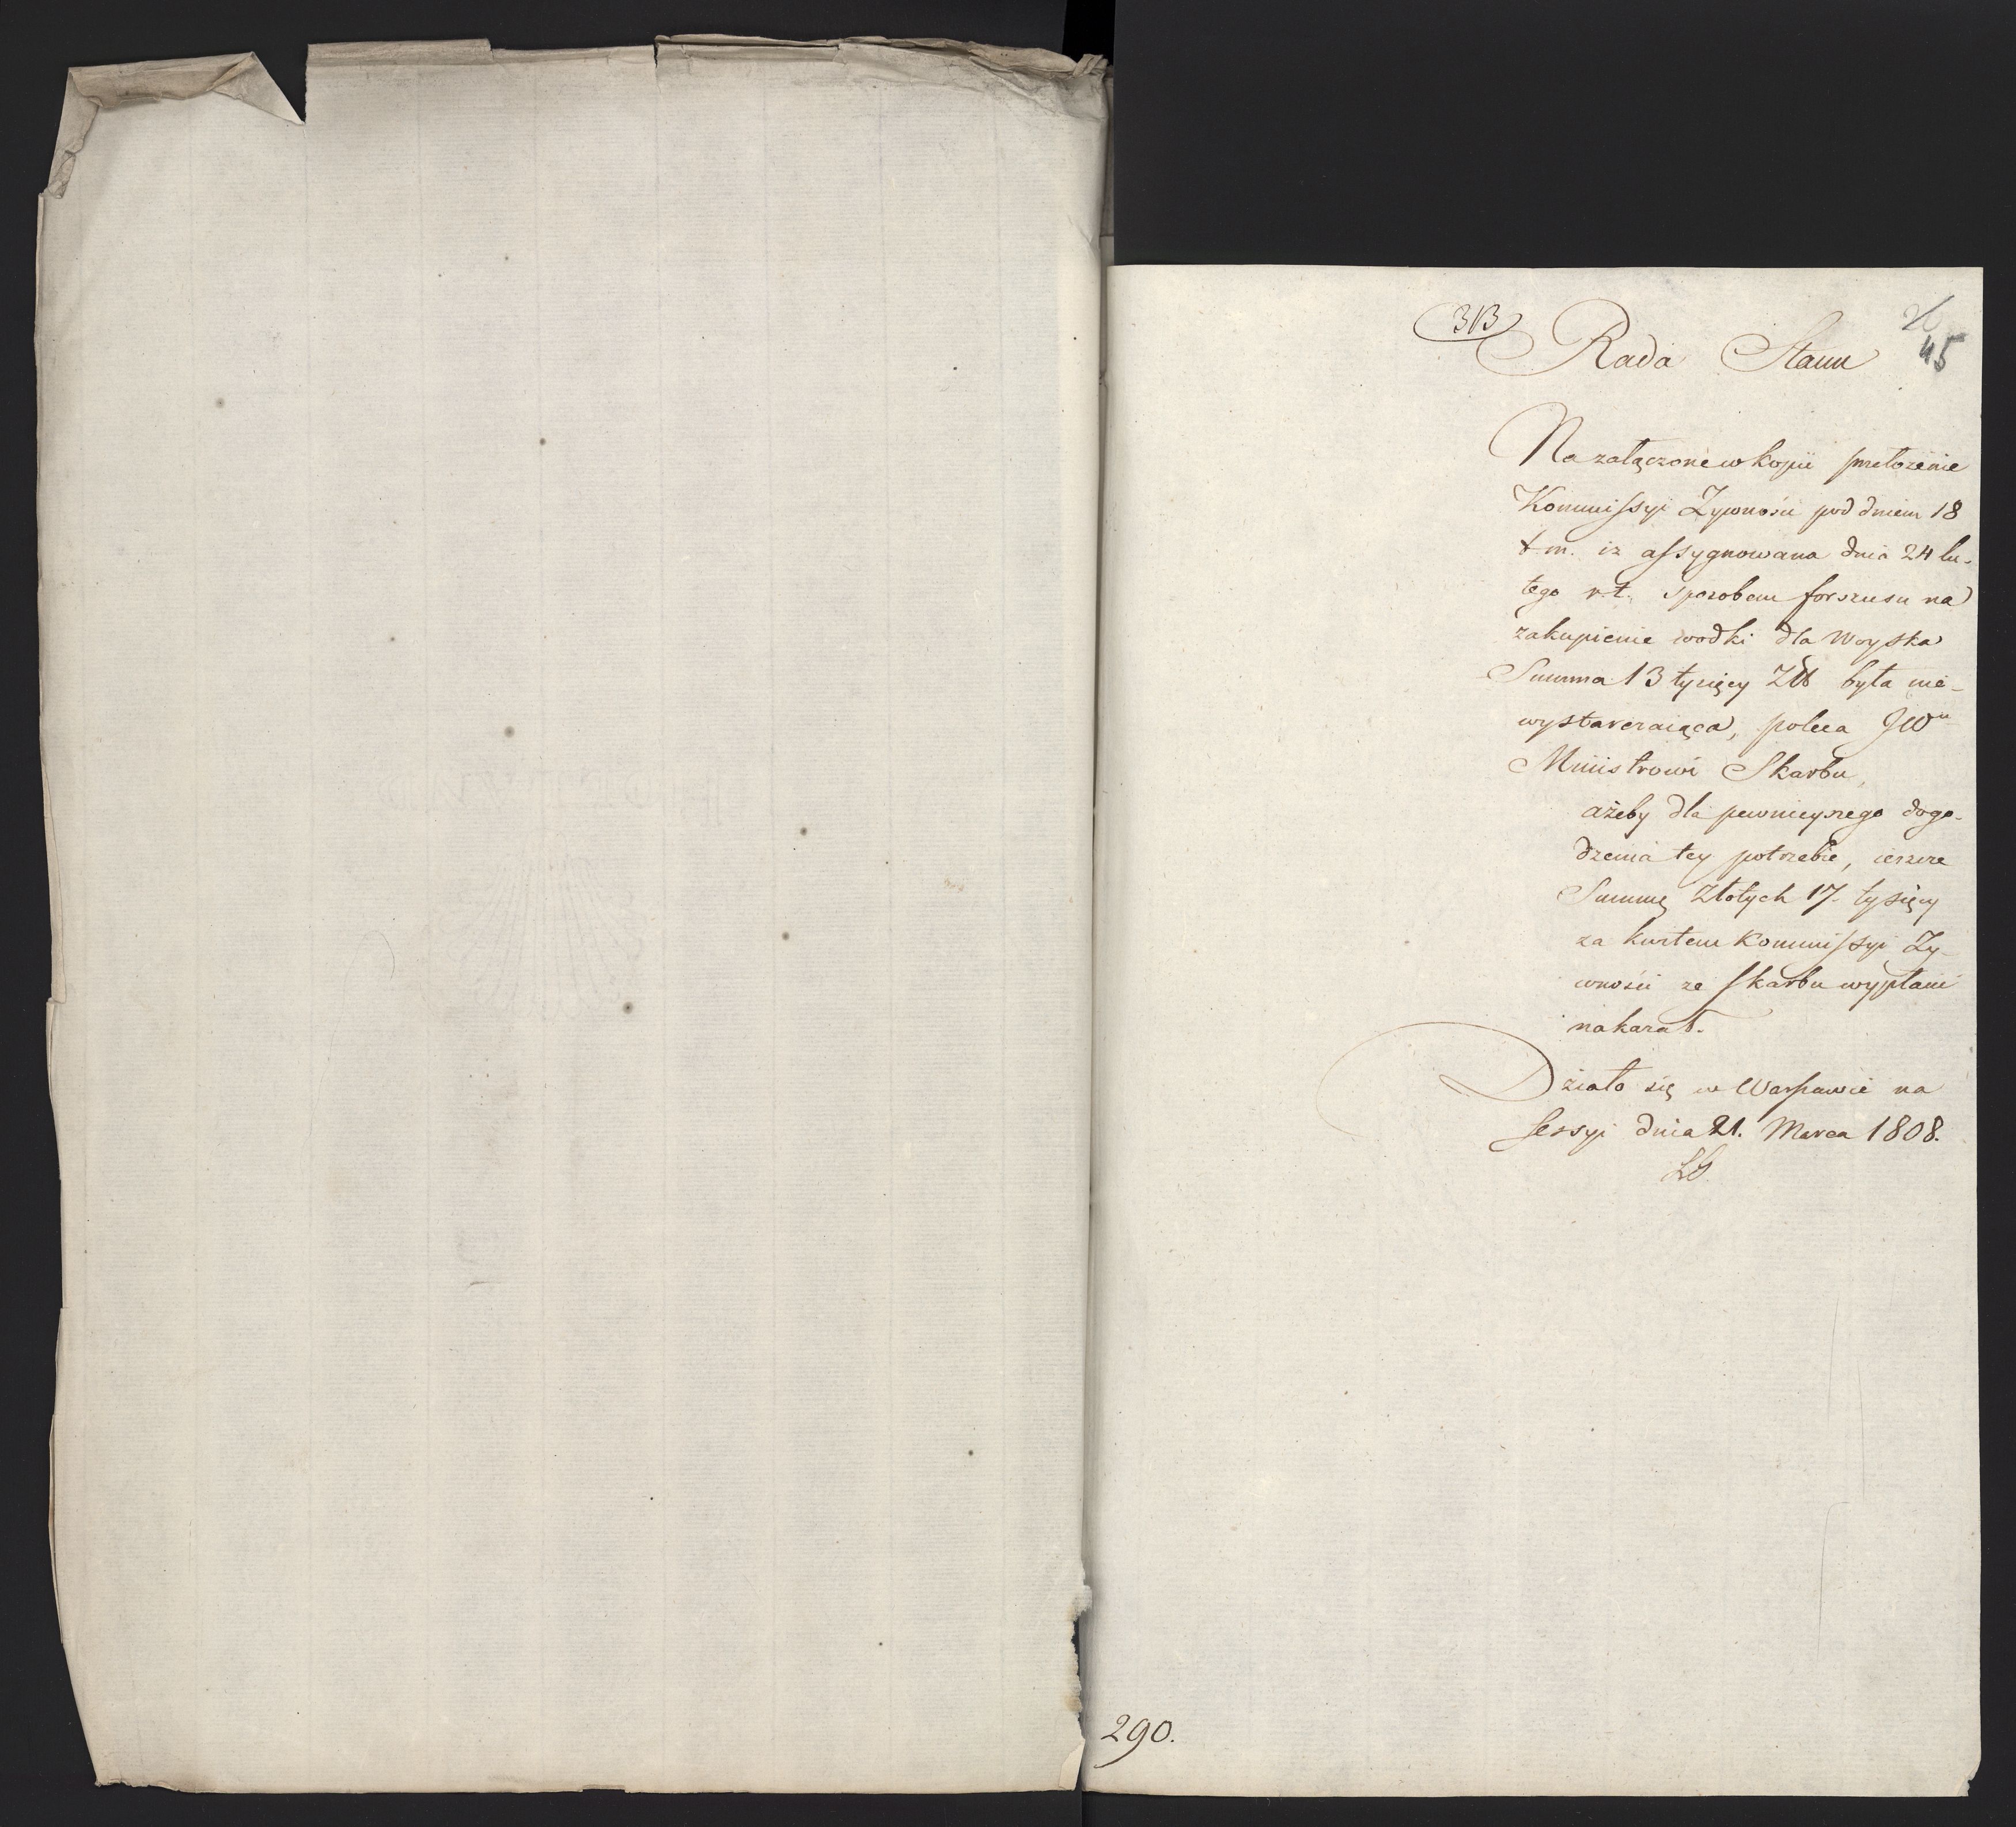 313
26
45
Rada Stanu
Na załączone w kopii przełożenie
Kommissyi Zywności pod dniem 18
t. m. iz assygnowana dnia 24 lu-
tego r. t. sposobem forszusu na
zakupienie wodki dla Woyska
Summa 13 tysięcy Złł była nie-
wystarczaiąca, poleca JWu
Ministrowi Skarbu,
ażeby dla pewnieyszego dogo-
dzenia tey potrzebie, ieszcze
Summę Złotych 17. tysięcy
za kwitem Kommissyi Zy-
wności ze skarbu wypłacić
nakazał.
Działo się w Warszawie na
sessyi dnia 21. Marca 1808.
290.